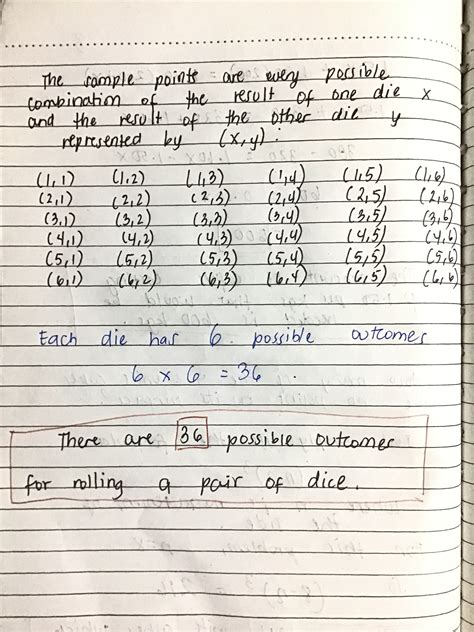 The sample points are every possible
combination of the result of one die x
and the result of the other die y
represented by (x,y):
(1,1) (1,2) (1,3) (1,4) (1,5) (1,6)
(2,1) (2,2) (2,3) (2,4) (2,5) (2,6)
(3,1) (3,2) (3,3) (3,4) (3,5) (3,6)
(4,1) (4,2) (4,3) (4,4) (4,5) (4,6)
(5,1) (5,2) (5,3) (5,4) (5,5) (5,6)
(6,1) (6,2) (6,3) (6,4) (6,5) (6,6)
Each die has 6 possible outcomes
6 x 6 = 36.
There are 36 possible outcomes
for rolling a pair of dice.